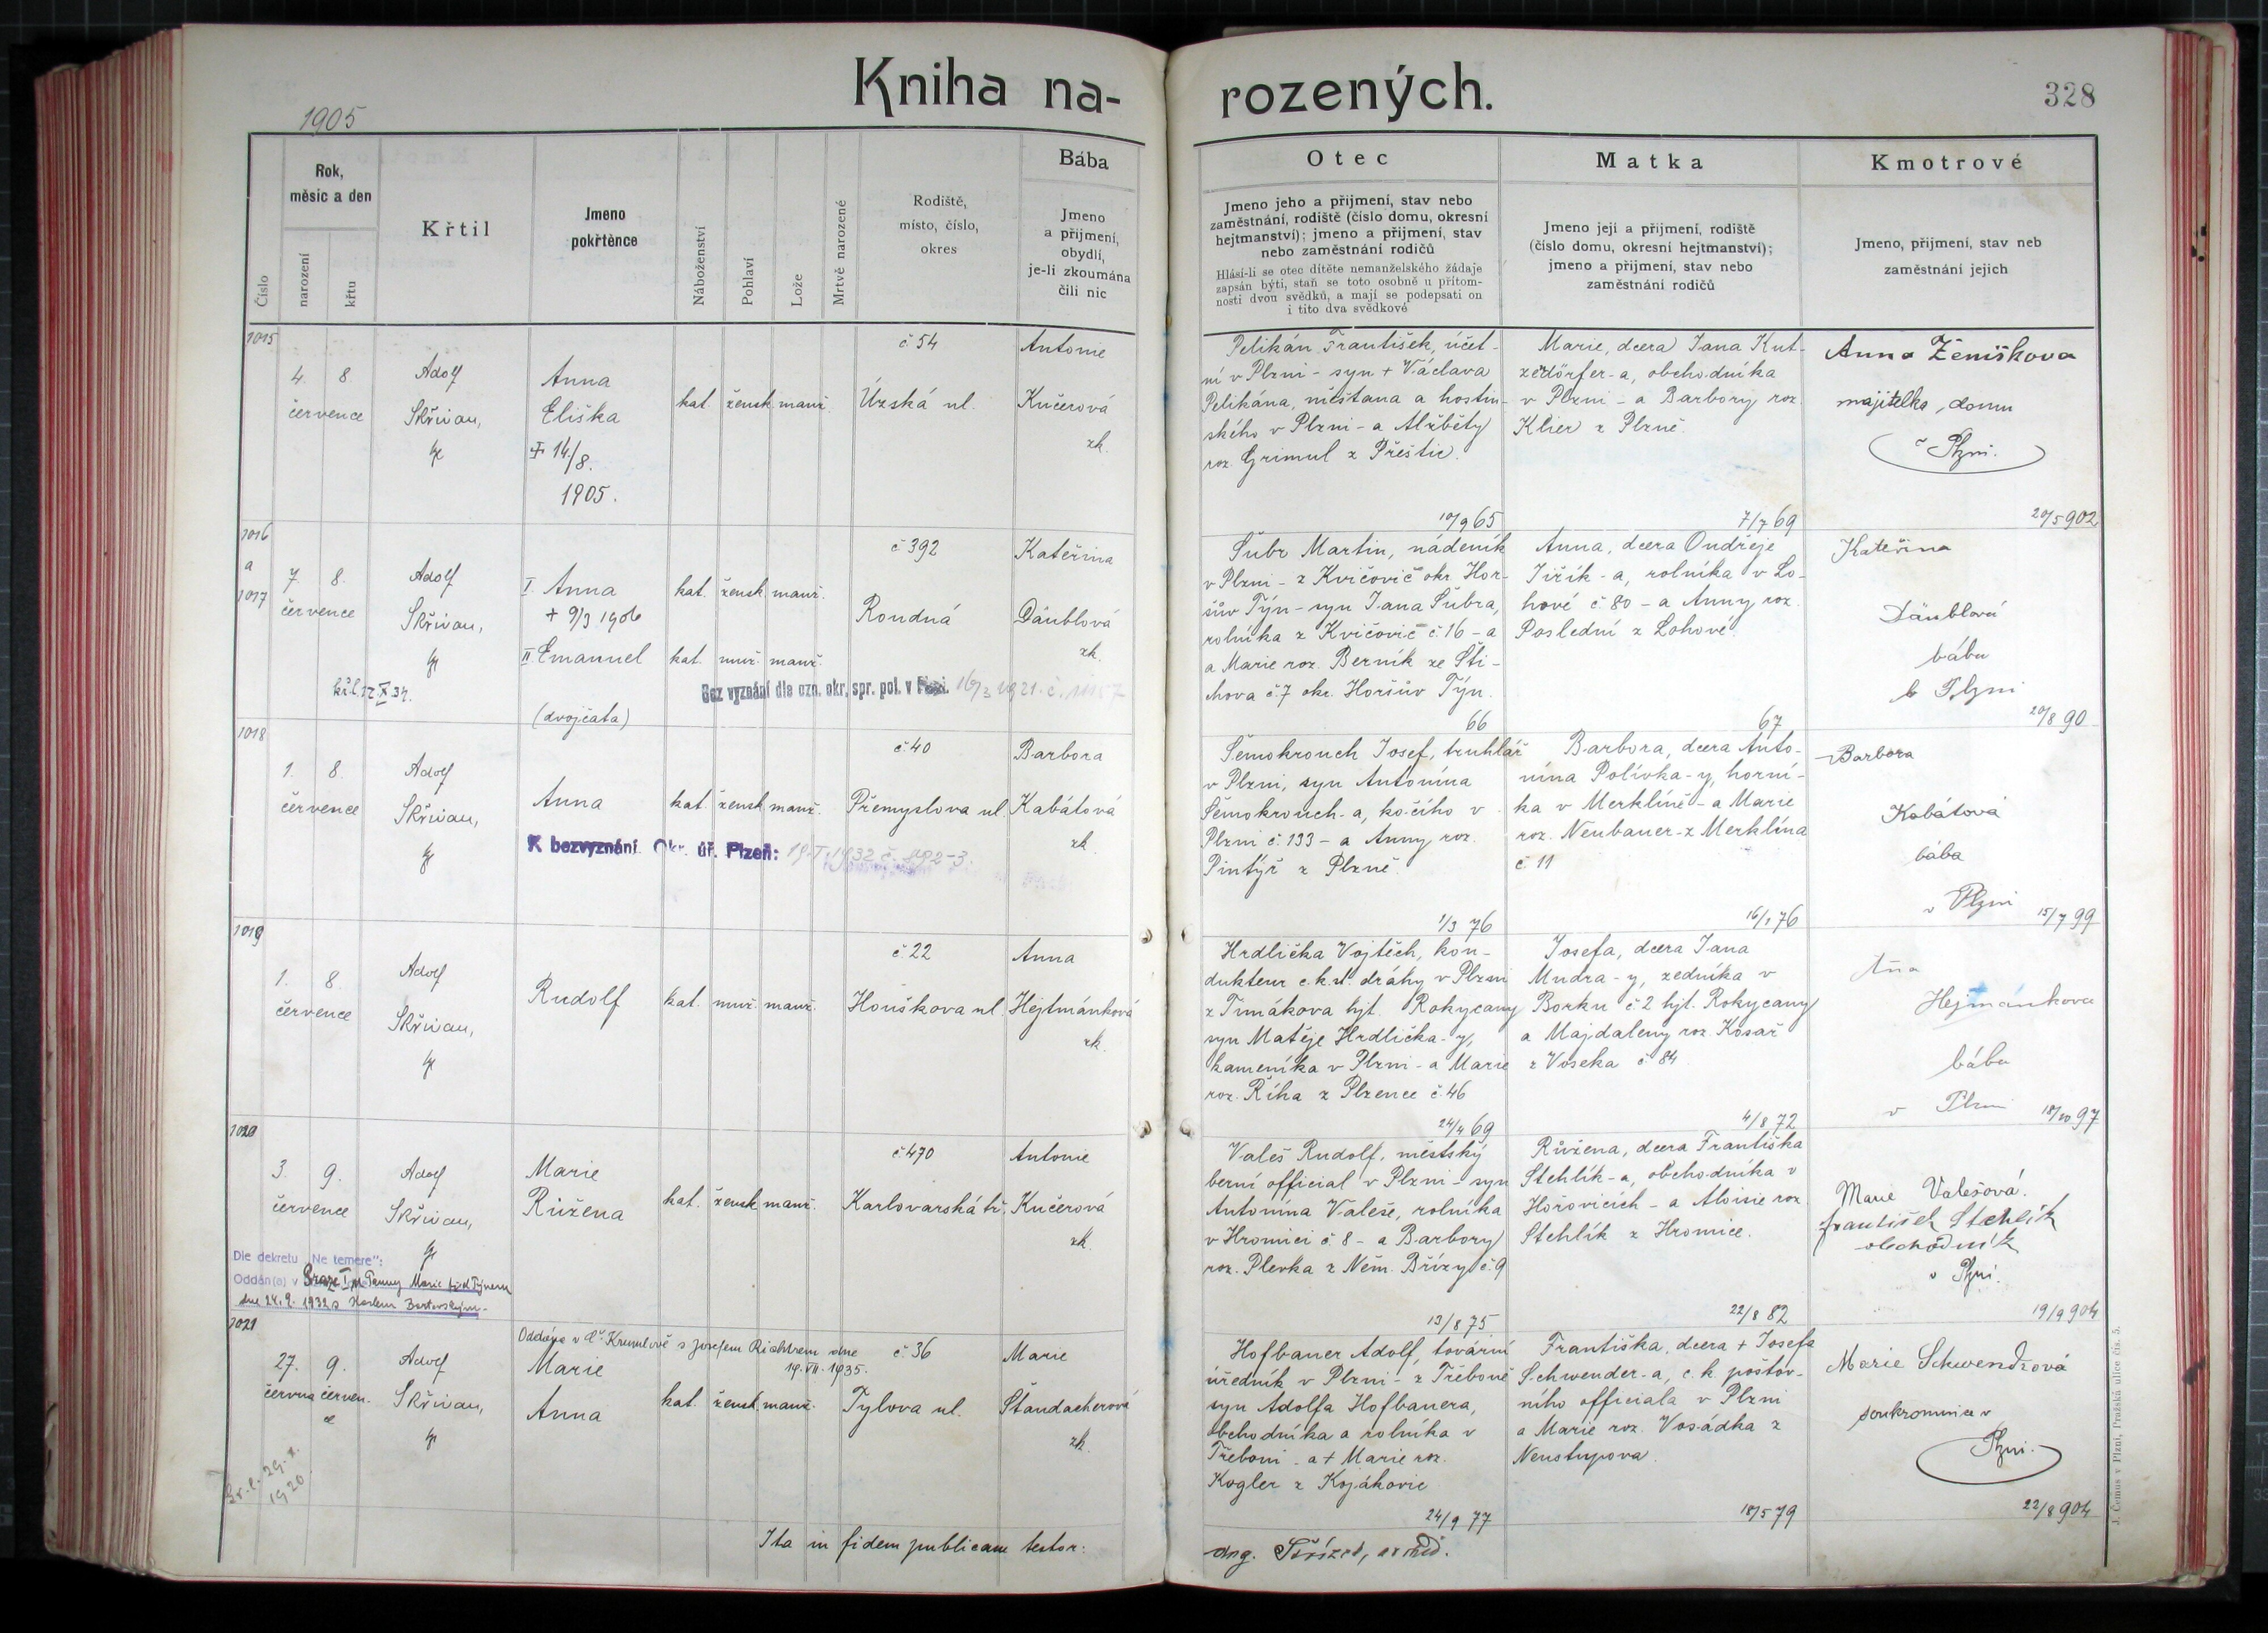 Kniha na-
rozených.
328
1905
Číslo
Rok,
měsíc a den
narození
křtu
Křtil
Jmeno
pokřtěnce
Náboženství
Pohlaví
Lože
Mrtvě narozené
Rodiště,
místo, číslo,
okres
Bába
Jmeno
a přijmení,
obydlí,
je-li zkoumána
čili nic
Otec
Jmeno jeho a přijmení, stav nebo
zaměstnání, rodiště (číslo domu, okresní
hejtmanství); jmeno a přijmení, stav
nebo zaměstnání rodičů
Hlásí-li se otec dítěte nemanželského žádaje
zapsán býti, staň se toto osobně u přítom-
nosti dvou svědků, a mají se podepsati on
i tito dva svědkové
Matka
Jmeno její a přijmení, rodiště
(číslo domu, okresní hejtmanství);
jmeno a přijmení, stav nebo
zaměstnání rodičů
Kmotrové
Jmeno, přijmení, stav neb
zaměstnání jejich
1015
4. 8.
července
Adolf
Skřivan,
Anna
Eliška
14/8.
1905.
kat. žensk. manž.
č 54
Úzská ul.
Antonie
Kučerová
zk.
Pelikán František, účet-
ní v Plzni - syn + Václava
Pelikána, měšťana a hostin-
ského v Plzni - a Alžběty
roz. Grimul z Přeštic.
10/9 65
Marie, dcera Jana Kut-
zedörfer-a, obchodníka
v Plzni - a Barbory roz.
Klier z Plzně
7/7 69
Anna Ženíškova
majitelka domu
v Plzni.
20/5 902
1016
a
1017
7. 8.
července
Adolf
Skřivan,
I. Anna
+ 9/3 1906
II. Emanuel
(dvojčata)
kat. žensk manž.
kat. muž. manž.
kř.l. 12 X 34.
Bez vyznání dle ozn. okr. spr. pol. v Plzni. 16/3 1921. č. 11157
č 392
Rondná
Kateřina
Däublová
zk.
Šubr Martin, nádeník
v Plzni - z Kvičovič okr. Hor-
šův Týn - syn Jana Šubra,
rolníka z Kvičovič č. 16 - a
a Marie roz. Berník ze Šti-
chova č. 7 okr. Horšův Týn.
66
Anna, dcera Ondřeje
Jiřík-a, rolníka v Lo-
hové č 80 - a Anny roz.
Poslední z Lohové
67
Kateřina
Däublová
bába
v Plzni
20/8 90
1018
1. 8.
července
Adolf
Skřivan,
Anna
kat. žensk. manž.
K bezvyznání Okr. úř. Plzeň: 19. I. 1932 č. 892-3.
č 40
Přemyslova ul.
Barbora
Kabátová
zk.
Šemokrouch Josef, truhlář
v Plzni, syn Antonína
Šemokrouch-a, kočího v
Plzni č. 133 - a Anny roz.
Pintýř z Plzně.
1/3 76
Barbora, dcera Anto-
nína Polívka-y, horní-
ka v Merklíně - a Marie
roz. Neubauer - z Merklína
č 11
16/1 76
Barbora
Kabátová
bába
v Plzni
15/7 99
1019
1. 8.
července
Adolf
Skřivan,
Rudolf
kat. muž. manž.
č 22
Houškova ul.
Anna
Hejtmánková
zk.
Hrdlička Vojtěch, kon-
dukteur c.k.st. dráhy v Plzni
z Timákova hjt. Rokycany
syn Matěje Hrdlička-y,
kameníka v Plzni - a Marie
roz. Říha z Plzence č. 46
24/4 69
Josefa, dcera Jana
Mudra-y, zedníka v
Borku č. 2 hjt. Rokycany
a Majdaleny roz. Kosař
z Voseka č 84
4/8 72
Hejtmánkova
bába
v Plzni
18/10 97
1020
3. 9.
července
Adolf
Skřivan,
Marie
Růžena
kat. žensk manž.
Dle dekretu „Ne temere":
Oddán(a) v Praze I. p. Panny Marie před Týnem
dne 24. 9. 1932 s Karlem Bartovským.
č 470
Karlovarská tř.
Antonie
Kučerová
zk.
Valeš Rudolf, městský
berní official v Plzni - syn
Antonína Valeše, rolníka
v Hromici č. 8 - a Barbory
roz. Plevka z Něm. Břízy č. 9
13/8 75
Růžena, dcera Františka
Stehlík-a, obchodníka v
Hořovicích - a Aloisie roz.
Stehlík z Hromice.
22/8 82
Marie Valešová.
František Stehlík
obchodník
v Plzni.
19/9 904
1021
27. 9.
června červen-
ce
Adolf
Skřivan,
Oddána v Č. Krumlově s Josefem Richtrem dne
19. VII. 1935.
Marie
Anna
kat. žensk. manž.
č. 36
Tylova ul.
Marie
Štandacherová
zk.
Hofbauer Adolf, tovární
úředník v Plzni - z Třeboně
syn Adolfa Hofbauera,
obchodníka a rolníka v
Třeboni - a + Marie roz.
Kogler z Kojákovic
24/9 77
Františka, dcera + Josefa
Schwender-a, c. k. poštov-
ního officiala v Plzni
a Marie roz. Vosádka z
Neustupova.
18/5 79
Marie Schwendrová
soukromnice v
Plzni.
22/8 904
29. X.
1920
Ita in fidem publicam testor:
J. Černoš v Plzni, Pražská ulice čís. 5.